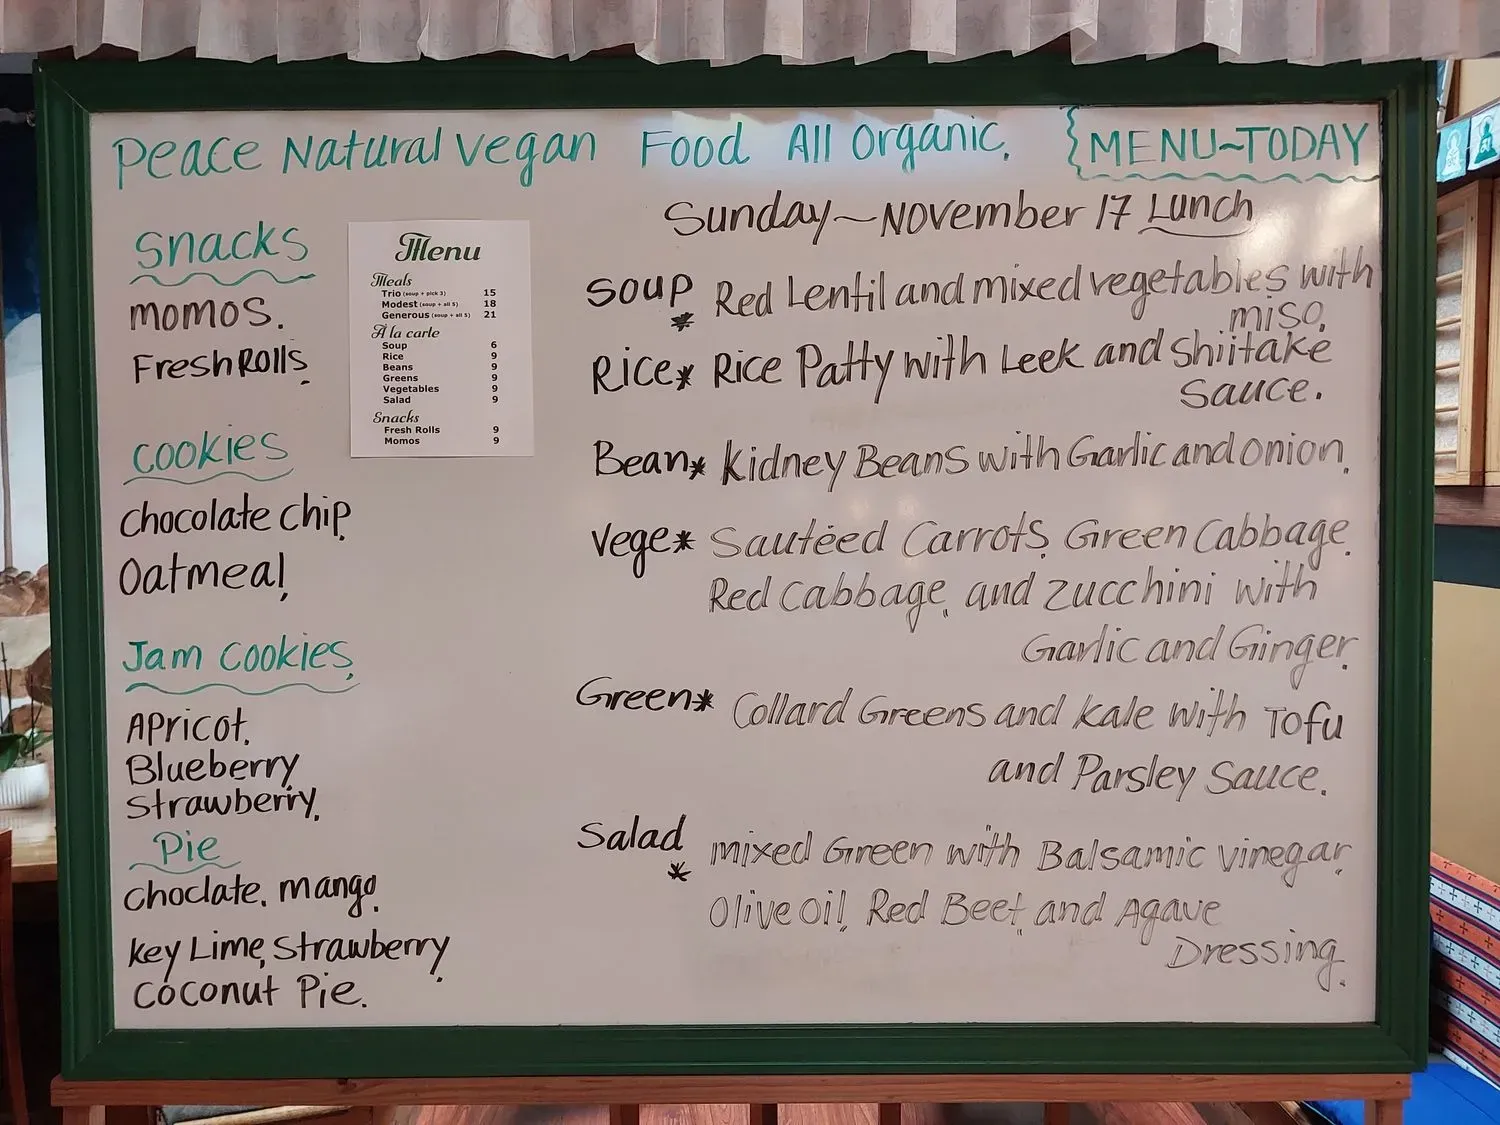 Peace Natural Vegan Food All Organic.
MENU~TODAY
Sunday~November 17 Lunch
Snacks
momos.
Fresh Rolls.
Cookies
Chocolate chip,
Oatmeal,
Jam Cookies,
Apricot.
Blueberry
Strawberry,
Pie
Choclate. mango,
Key Lime, Strawberry,
Coconut Pie.
Menu
Meals
Trio (soup + pick 3) 15
Modest (soup + all 5) 18
Generous (soup + all 5) 21
À la carte
Soup 6
Rice 9
Beans 9
Greens 9
Vegetables 9
Salad 9
Snacks
Fresh Rolls 9
Momos 9
Soup * Red Lentil and mixed vegetables with
miso,
Rice* Rice Patty with Leek and Shiitake
Sauce.
Bean* Kidney Beans with Garlic and onion,
Vege* Sautéed Carrots, Green Cabbage,
Red Cabbage, and Zucchini with
Garlic and Ginger,
Green* Collard Greens and Kale with Tofu
and Parsley Sauce.
Salad * mixed Green with Balsamic vinegar,
Olive Oil, Red Beet, and Agave
Dressing,